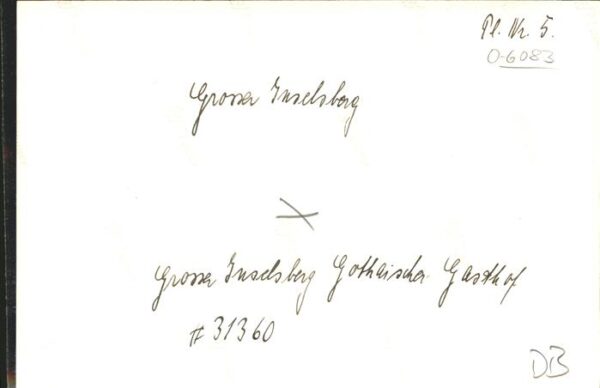 Pl. Nr. 5.
0-6083
Grosser Inselsberg
Grosser Inselsberg Gothaischer Gasthof
# 31360
DB